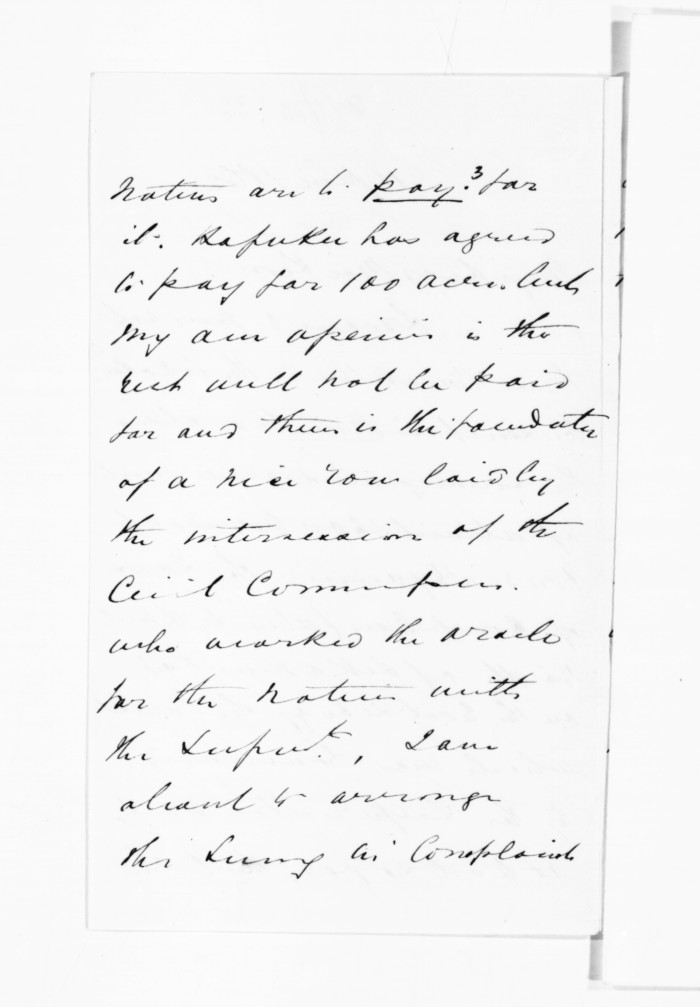 Natives are to pay 3 for
it. has agreed
to pay for 100 acres. but
my own opinion is the
rest will not be paid
for and there is the foundation
of a nice row laid by
the intercession of the
Civil Commissr.
who worked the oracle
for the Natives with
the Supdt, I am
about to arrange
the Survey